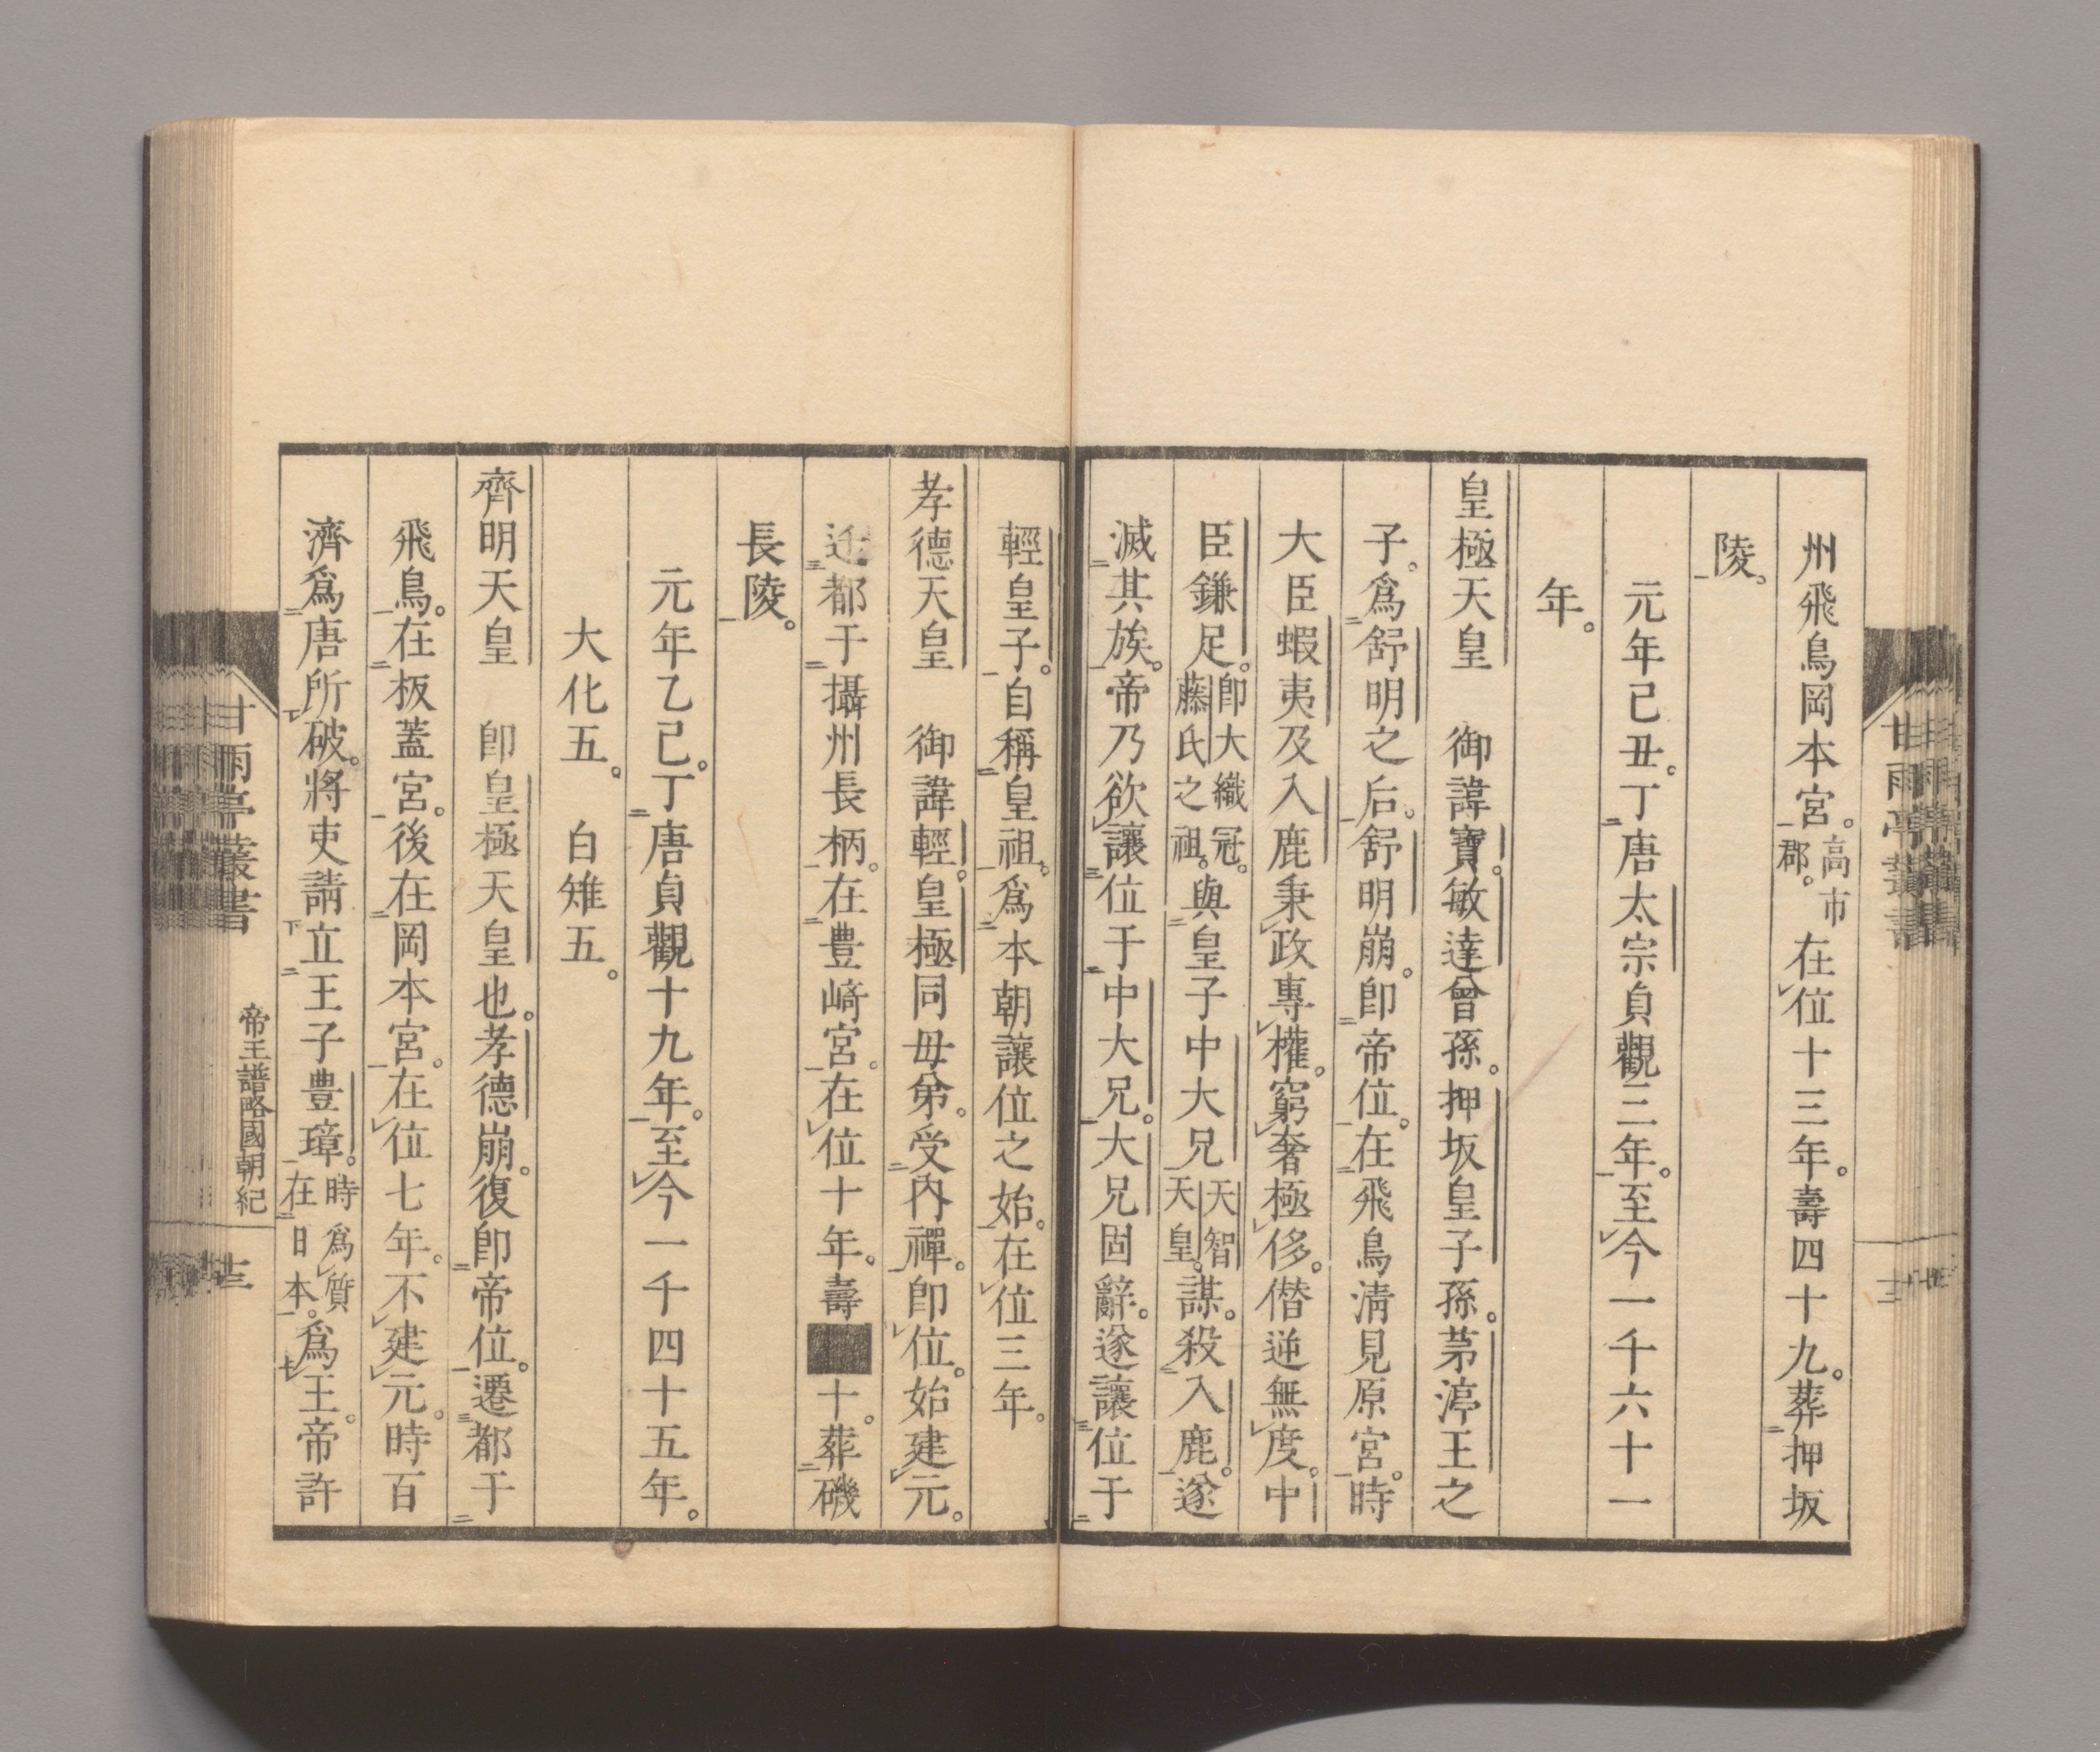 州飛鳥岡本宮。高市郡。在位十三年。壽四十九。葬押坂
陵。
元年己丑。丁唐太宗貞觀三年。至今一千六十一
年。
皇極天皇　御諱寶。敏達曾孫。押坂皇子孫。茅渟王之
子。爲舒明之后。舒明崩。卽帝位。在飛鳥淸見原宮。時
大臣蝦夷及入鹿秉政專權。窮奢極侈。僭逆無度。中
臣鎌足。卽大織冠。藤氏之祖。與皇子中大兄天智天皇。謀。殺入鹿。遂
滅其族。帝乃欲讓位于中大兄。大兄固辭。遂讓位于
輕皇子。自稱皇祖。爲本朝讓位之始。在位三年。
孝德天皇　御諱輕。皇極同毋弟。受內禪。卽位。始建元。
迁都于攝州長柄。在豊崎宮。在位十年。壽■十。葬磯
長陵。
元年乙巳。丁唐貞觀十九年。至今一千四十五年。
大化五。　白雉五。
齊明天皇　卽皇極天皇也。孝德崩。復卽帝位。遷都于
飛鳥。在板蓋宮。後在岡本宮。在位七年。不建元。時百
濟爲唐所破。將吏請立王子豊璋。時爲質在日本。爲王。帝許
甘雨亭叢書
帝王譜略國朝紀
十三